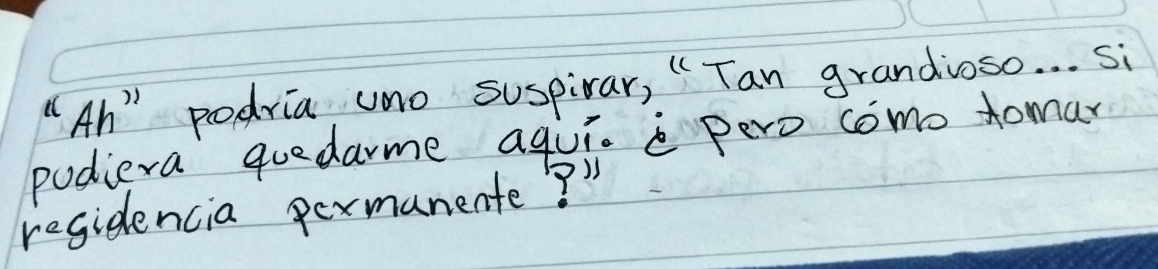 “Ah” podría uno suspirar, “Tan grandioso... si
pudiera quedarme aquí. ¿ Pero cómo tomar
residencia permanente?”